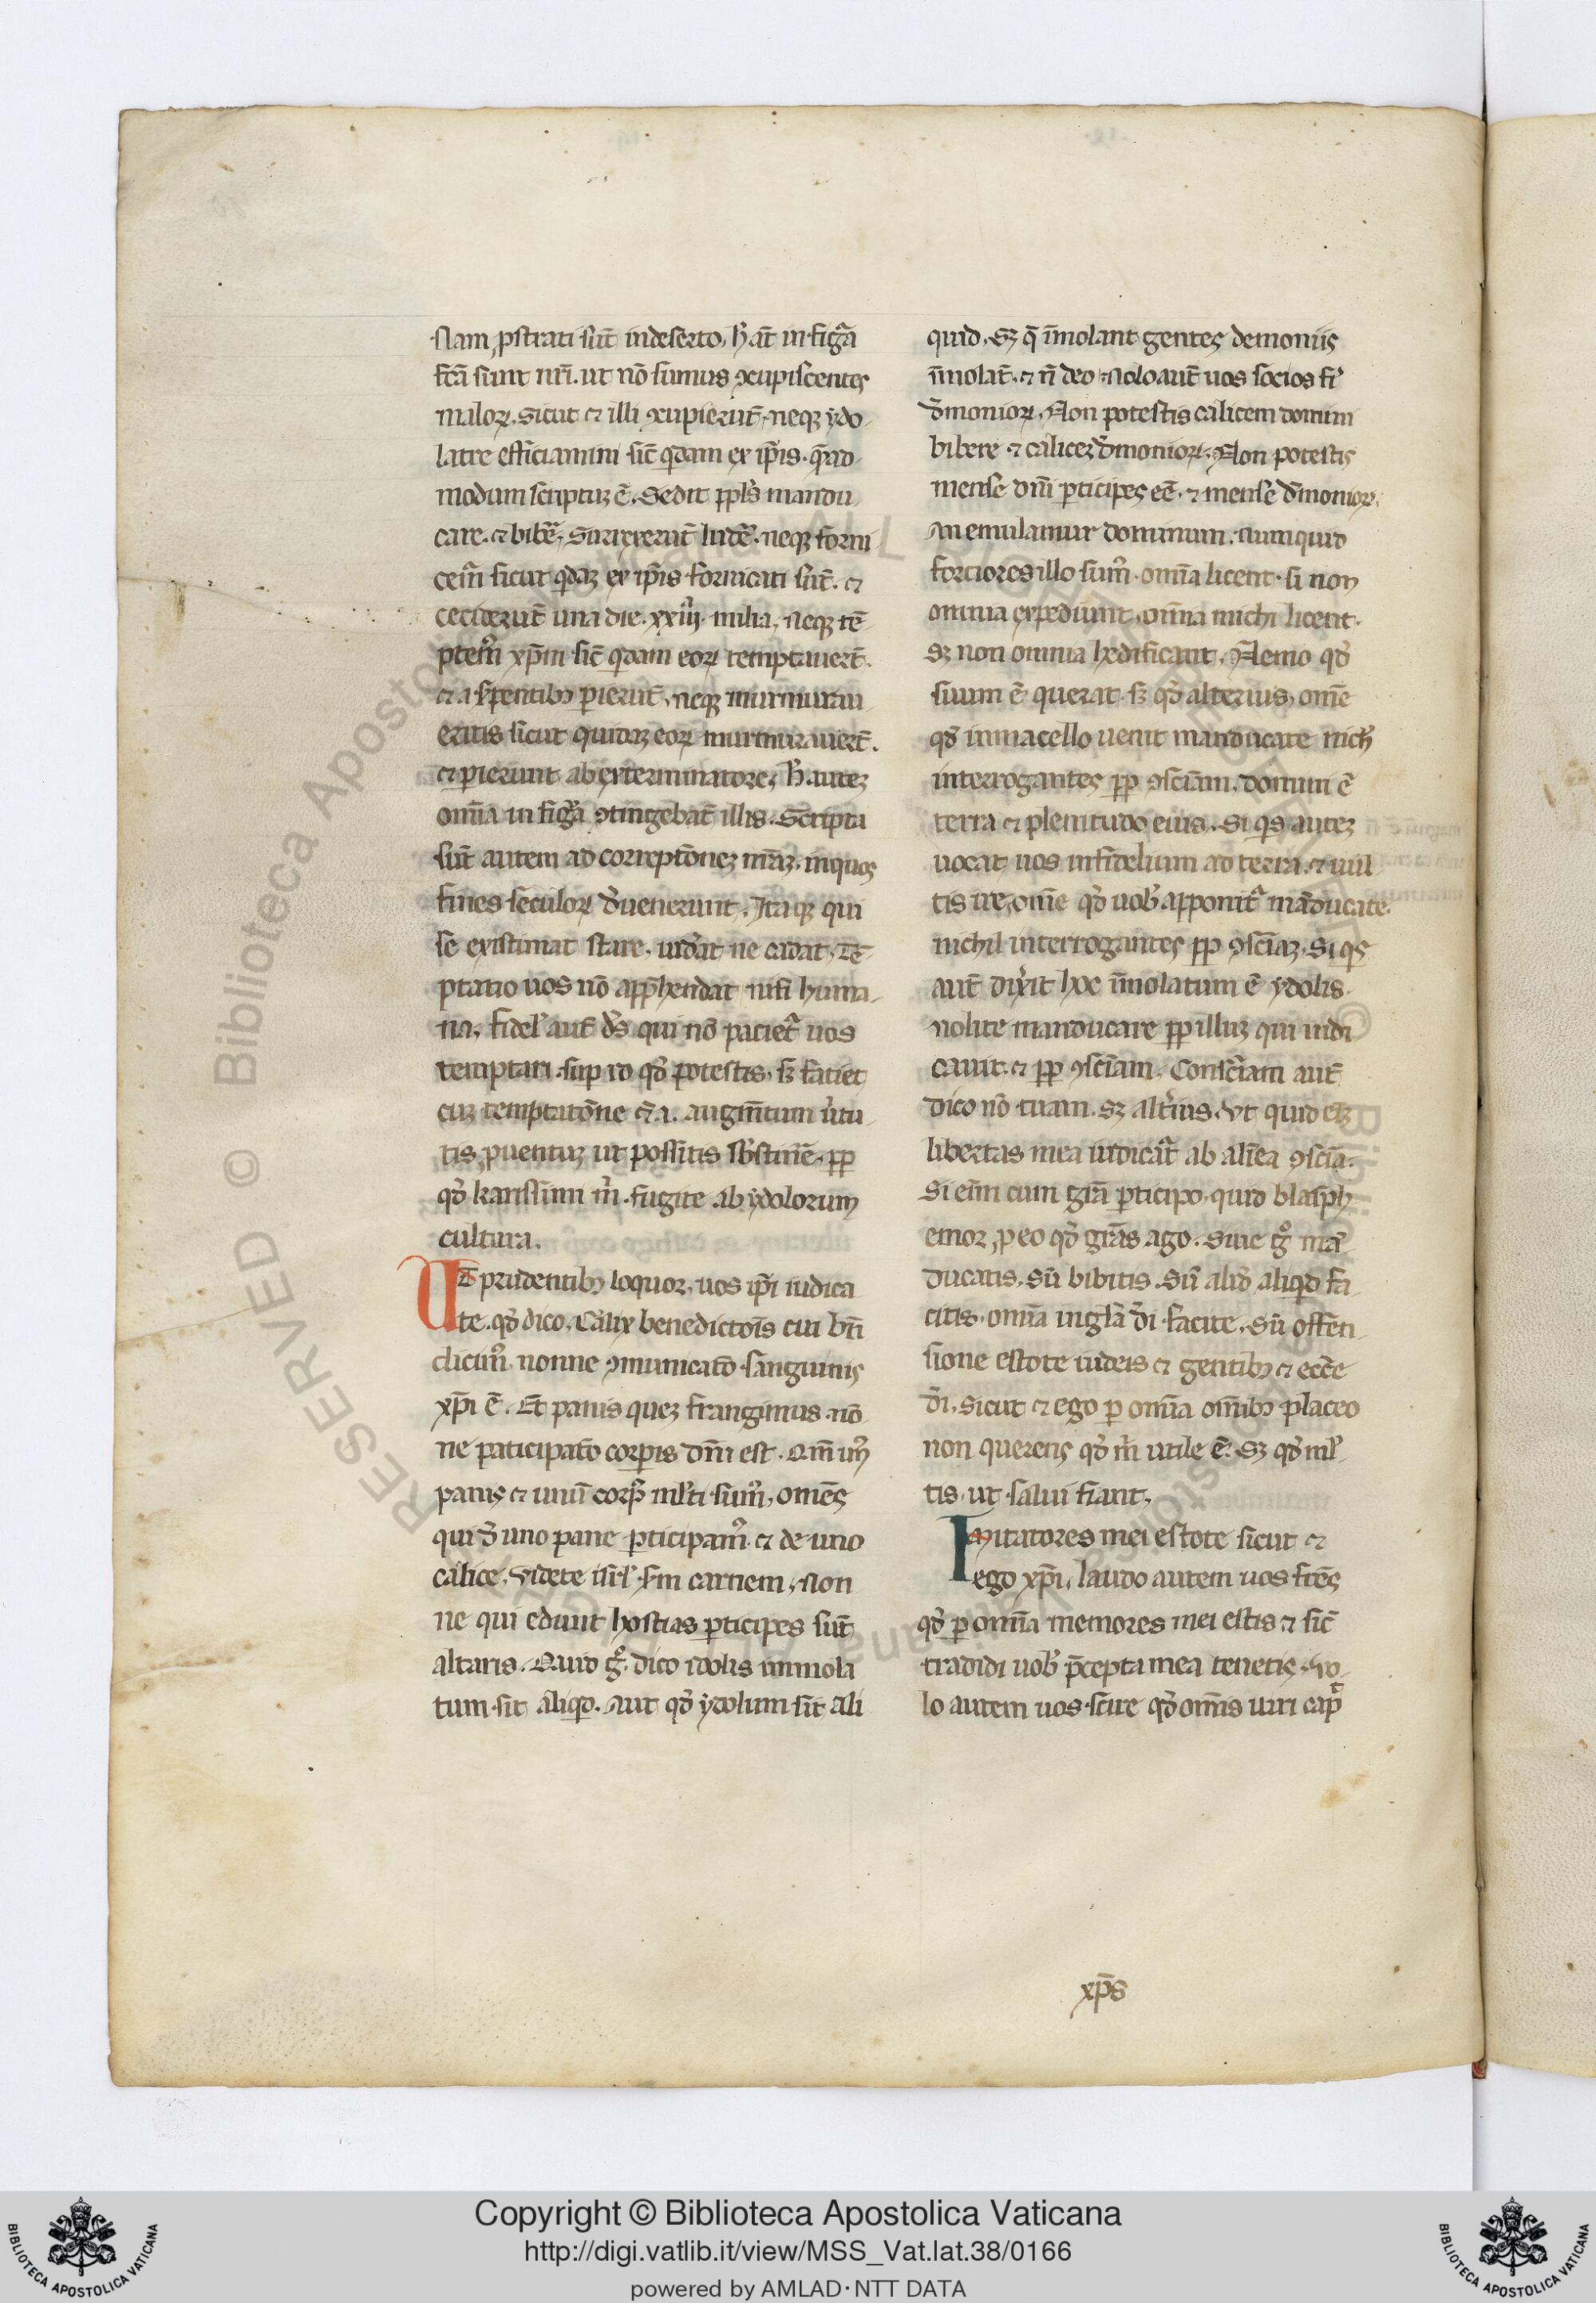 Nam ꝓstrati sūt in deserto, h̄ aūt in figᷓa
fc̄a sunt nr̄i. ut nō simus ꝯcupiscentes
maloꝝ. Sicut ⁊ illi ꝯcupierūt. neqꝫ ydo
latre efficiamini sic̄ qͥdam ex ip̄is. q̄ad
modum scriptuꝫ ē. Sedit ppl̄s mandu
care. ⁊ bibe͛. Surrexerūt lude͛. neqꝫ forni
cem᷒ sicut qͥdaꝫ ex ip̄is fornicati sūt. ⁊
ceciderūt una die. xxiii. milia. neqꝫ tē
ptem᷒ xp̄m sic̄ qͥdam eoꝝ temptauerūt.
⁊ a s͛pentibꝫ ꝑierūt. neqꝫ murmurau
eritis sicut quidaꝫ eoꝝ murmurauerūt.
⁊ ꝑierunt ab exterminatore. h̄ auteꝫ
om̄ia in figᷓa ꝯtingebāt illis. Scripta
sūt autem ad correptōneꝫ nr̄aꝫ. in quos
fines seculoꝝ deuenerunt. Itaqꝫ qui
se existimat stare. uideat ne cadat. Tē
ptatio uos nō app̄hendat nisi huma
na. fidel' aūt ds̄ qui nō pacietᷓ uos
temptari sup id qd̄ potestis. sꝫ faciet
cuꝫ temptatōne ⁊ā. augm̄tum uͥtu
tis ꝓuentuꝫ ut possitis sb̄stinē. ꝓꝑ
qd̄ karissimi m̄. fugite ab ydolorum
cultura.
Ut prudentibꝫ loquor. uos ip̄i iudica
te. qd̄ dico. Calix benedictōis cui bn̄
dicim᷒ nonne ꝯmunicatō sanguinis
xp̄i ē. Et panis queꝫ frangimus. nō
ne ꝑticipatō corꝑis dn̄i est. Qm̄ un᷒
panis ⁊ unū corp᷒ ml'ti sum᷒, omēs
qui d̄ uno pane ꝑticipam᷒. ⁊ de uno
calice. Videte isr̄l' sm̄ carnem. Non
ne qui edunt hostias ꝑticipes sūt
altaris. Quid gͦ. dico idolis immola
tum sit aliqͥd. Aut qd̄ ydolum sit ali
quid. Sꝫ q̄ īmolant gentes demoniis
īmolāt. ⁊ n̄ deo. Nolo aūt uos socios fi͛
d̄monioꝝ. Non potestis calicem domini
bibere ⁊ caliceꝫ d̄monioꝝ. Non potestis
mense dn̄i ꝑticipes eē. ⁊ mense d̄monioꝝ.
An emulamur dominum. Numquid
forciores illo sum᷒. om̄ia licent. si non
omnia expediunt. om̄ia michi licent.
Sꝫ non omnia hedificant. Nemo qd̄
suum ē querat. sꝫ qd̄ alterius. omē
qd̄ in macello uenit manducate nich̄
interrogantes ꝓꝑ ꝯsciam. domini ē
terra ⁊ plenitudo eius. Si qͥs auteꝫ
uocat uos infidelium ad terra. ⁊ uul
tis ire. omē qd̄ uob̄ apponitᷓ māducate.
nichil interrogantes ꝓꝑ ꝯsciaꝫ. Si qͥs
aūt dixͥit hoc īmolatum ē ydolis.
nolite manducare ꝓꝑ illuꝫ qui indi
cauit. ⁊ ꝓꝑ ꝯsciam. Consciam aūt
dico nō tuam. Sꝫ alt͛ius. Ut quid eīꝫ
libertas mea iudicatᷓ ab aliēa ꝯscia.
Si eīm cum grā ꝑticipo. quid blasph
emor ꝓ eo qd̄ grās ago. Siue gͦ mā
ducatis. Sū bibitis. Sū aliud aliqͥd fa
citis. om̄ia in gl̄a d̄i facite. Sū offen
sione estote iudeis ⁊ gentibꝫ ⁊ ecc̄e
d̄i. Sicut ⁊ ego ꝑ om̄ia om̄ibꝫ placeo
non querens qd̄ m̄ utile ē. Sꝫ qd̄ ml'
tis ut salui fiant.
Imitatores mei estote sicut ⁊
ego xp̄i. laudo autem uos fr̄es
qd̄ ꝑ om̄ia memores mei estis ⁊ sic̄
tradidi uob̄ p̄cepta mea tenetis. Uo
lo autem uos scire qd̄ om̄is uiri capᷓ
xp̄s
Copyright © Biblioteca Apostolica Vaticana
http://digi.vatlib.it/view/MSS_Vat.lat.38/0166
powered by AMLAD · NTT DATA
BIBLIOTECA APOSTOLICA VATICANA
BIBLIOTECA APOSTOLICA VATICANA